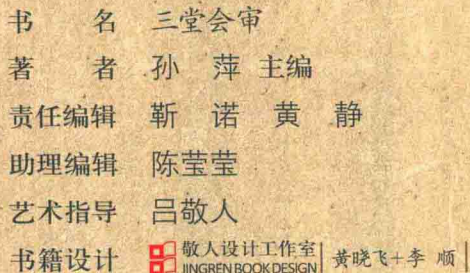 书 名 三堂会审
著 者 孙 萍 主编
责任编辑 靳 诺 黄 静
助理编辑 陈莹莹
艺术指导 吕敬人
书籍设计 敬人设计工作室 JINGREN BOOK DESIGN 黄晓飞+李 顺